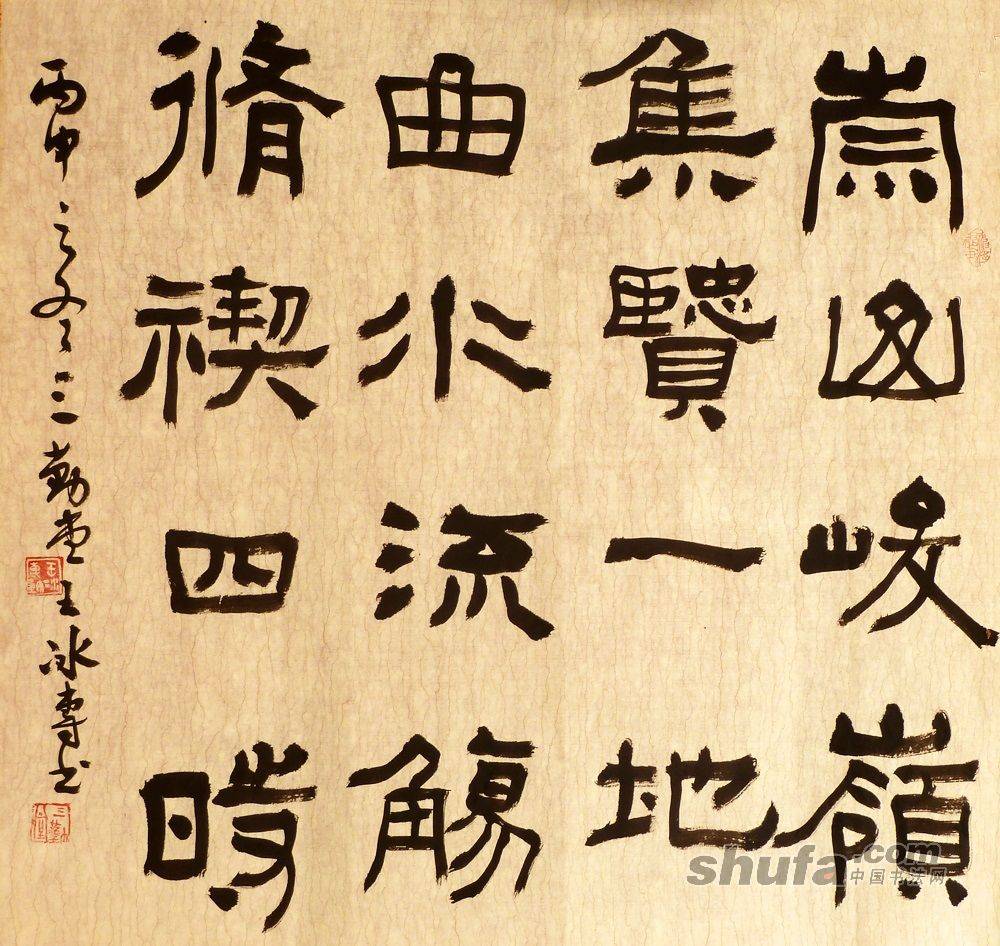 崇山峻嶺
集贒一地
曲水流觴
脩禊四時
丙申之冬三勤堂王冰專书
shufa.com
中国书法网